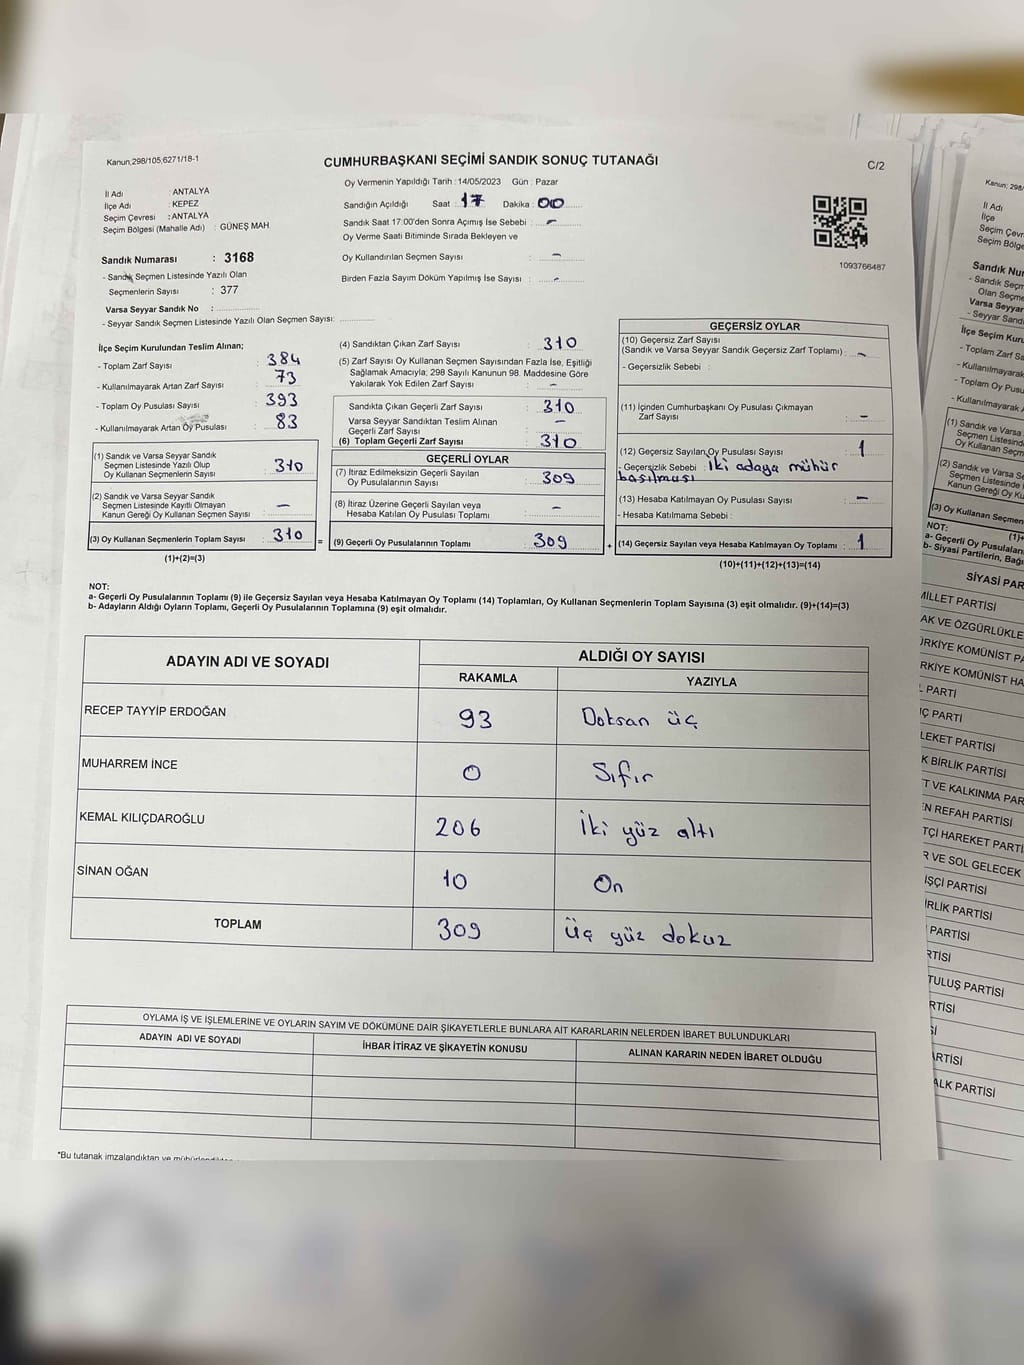 Kanun;298/105,6271/18-1
CUMHURBAŞKANI SEÇİMİ SANDIK SONUÇ TUTANAĞI
C/2
Oy Vermenin Yapıldığı Tarih : 14/05/2023 Gün : Pazar
İl Adı : ANTALYA
İlçe Adı : KEPEZ
Seçim Çevresi : ANTALYA
Seçim Bölgesi (Mahalle Adı) : GÜNEŞ MAH
Sandık Numarası : 3168
- Sandık Seçmen Listesinde Yazılı Olan
Seçmenlerin Sayısı : 377
Varsa Seyyar Sandık No :
- Seyyar Sandık Seçmen Listesinde Yazılı Olan Seçmen Sayısı:
Sandığın Açıldığı Saat : 17 Dakika : 00
Sandık Saat 17:00'den Sonra Açımış İse Sebebi : -
Oy Verme Saati Bitiminde Sırada Bekleyen ve
Oy Kullandırılan Seçmen Sayısı : -
Birden Fazla Sayım Döküm Yapılmış İse Sayısı : -
1093766487
İlçe Seçim Kurulundan Teslim Alınan;
- Toplam Zarf Sayısı : 384
- Kullanılmayarak Artan Zarf Sayısı : 73
- Toplam Oy Pusulası Sayısı : 393
- Kullanılmayarak Artan Oy Pusulası : 83
(1) Sandık ve Varsa Seyyar Sandık
Seçmen Listesinde Yazılı Olup
Oy Kullanan Seçmenlerin Sayısı : 310
(2) Sandık ve Varsa Seyyar Sandık
Seçmen Listesinde Kayıtlı Olmayan
Kanun Gereği Oy Kullanan Seçmen Sayısı : -
(3) Oy Kullanan Seçmenlerin Toplam Sayısı : 310 =
(1)+(2)=(3)
(4) Sandıktan Çıkan Zarf Sayısı : 310
(5) Zarf Sayısı Oy Kullanan Seçmen Sayısından Fazla İse, Eşitliği
Sağlamak Amacıyla; 298 Sayılı Kanunun 98. Maddesine Göre
Yakılarak Yok Edilen Zarf Sayısı : -
Sandıkta Çıkan Geçerli Zarf Sayısı : 310
Varsa Seyyar Sandıktan Teslim Alınan
Geçerli Zarf Sayısı : -
(6) Toplam Geçerli Zarf Sayısı : 310
GEÇERLİ OYLAR
(7) İtiraz Edilmeksizin Geçerli Sayılan
Oy Pusulalarının Sayısı : 309
(8) İtiraz Üzerine Geçerli Sayılan veya
Hesaba Katılan Oy Pusulası Toplamı : -
(9) Geçerli Oy Pusulalarının Toplamı : 309 +
GEÇERSİZ OYLAR
(10) Geçersiz Zarf Sayısı
(Sandık ve Varsa Seyyar Sandık Geçersiz Zarf Toplamı) : -
- Geçersizlik Sebebi :
(11) İçinden Cumhurbaşkanı Oy Pusulası Çıkmayan
Zarf Sayısı : -
(12) Geçersiz Sayılan Oy Pusulası Sayısı : 1
- Geçersizlik Sebebi : İki adaya mühür
basılması
(13) Hesaba Katılmayan Oy Pusulası Sayısı : -
- Hesaba Katılmama Sebebi :
(14) Geçersiz Sayılan veya Hesaba Katılmayan Oy Toplamı : 1
(10)+(11)+(12)+(13)=(14)
NOT:
a- Geçerli Oy Pusulalarının Toplamı (9) ile Geçersiz Sayılan veya Hesaba Katılmayan Oy Toplamı (14) Toplamları, Oy Kullanan Seçmenlerin Toplam Sayısına (3) eşit olmalıdır. (9)+(14)=(3)
b- Adayların Aldığı Oyların Toplamı, Geçerli Oy Pusulalarının Toplamına (9) eşit olmalıdır.
ADAYIN ADI VE SOYADI
ALDIĞI OY SAYISI
RAKAMLA YAZIYLA
RECEP TAYYİP ERDOĞAN 93 Doksan üç
MUHARREM İNCE 0 Sıfır
KEMAL KILIÇDAROĞLU 206 İki yüz altı
SİNAN OĞAN 10 On
TOPLAM 309 Üç yüz dokuz
OYLAMA İŞ VE İŞLEMLERİNE VE OYLARIN SAYIM VE DÖKÜMÜNE DAİR ŞİKAYETLERLE BUNLARA AİT KARARLARIN NELERDEN İBARET BULUNDUKLARI
ADAYIN ADI VE SOYADI İHBAR İTİRAZ VE ŞİKAYETİN KONUSU ALINAN KARARIN NEDEN İBARET OLDUĞU
*Bu tutanak imzalandıktan ve
Kanun; 298/
İl Adı
İlçe
Seçim Çevr
Seçim Bölge
Sandık Num
- Sandık Seçm
Olan Seçme
Varsa Seyyar
- Seyyar Sandı
İlçe Seçim Kuru
- Toplam Zarf Sa
- Kullanılmayarak
- Toplam Oy Pusu
- Kullanılmayarak A
(1) Sandık ve Varsa
Seçmen Listesind
Oy Kullanan Seçm
(2) Sandık ve Varsa Se
Seçmen Listesinde
Kanun Gereği Oy Ku
(3) Oy Kullanan Seçmen
(1)+
NOT:
a- Geçerli Oy Pusulaların
b- Siyasi Partilerin, Bağı
SİYASİ PAR
MİLLET PARTİSİ
AK VE ÖZGÜRLÜKLE
ÜRKİYE KOMÜNİST PA
RKİYE KOMÜNİST HA
L PARTİ
İÇ PARTİ
LEKET PARTİSİ
K BİRLİK PARTİSİ
T VE KALKINMA PAR
EN REFAH PARTİSİ
TÇİ HAREKET PARTİ
R VE SOL GELECEK
İŞÇİ PARTİSİ
İRLİK PARTİSİ
PARTİSİ
RTİSİ
TULUŞ PARTİSİ
RTİSİ
Sİ
ARTİSİ
ALK PARTİSİ